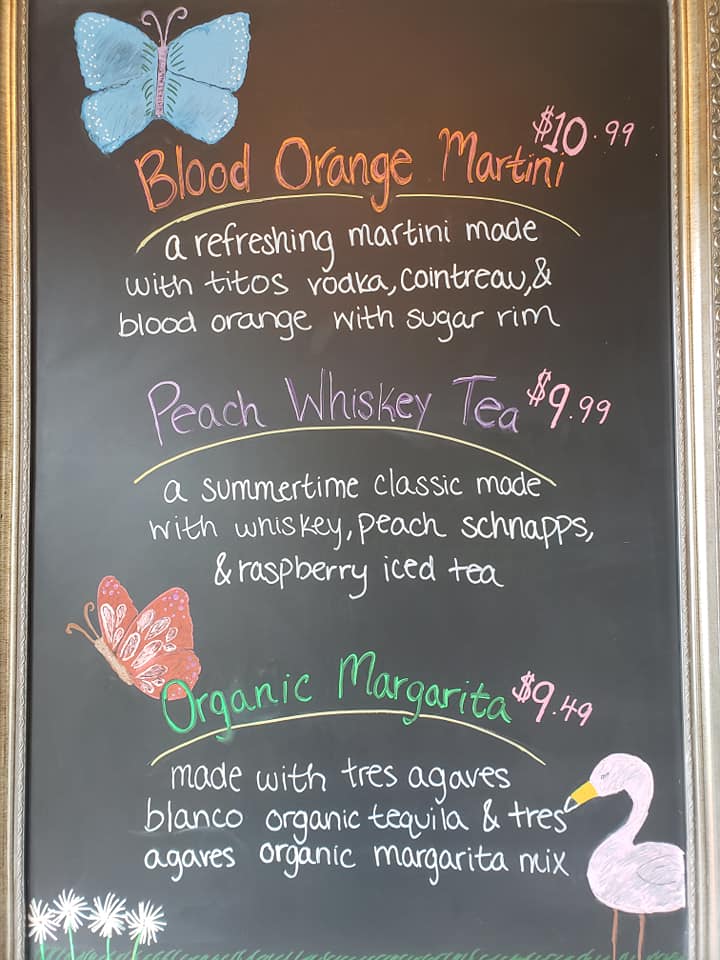 Blood Orange Martini $10.99
a refreshing martini made
with titos vodka, Cointreau, &
blood orange with sugar rim
Peach Whiskey Tea $9.99
a summertime classic made
with whiskey, peach schnapps,
& raspberry iced tea
Organic Margarita $9.49
made with tres agaves
blanco organic tequila & tres
agaves organic margarita mix